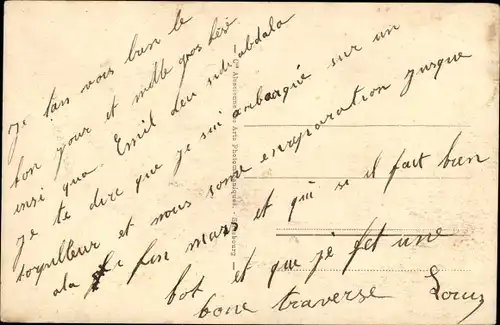 Je tan vois bien le
bon jour et mille gros besé
insi que Emil Leu sidi abdala
Je te dire que je sui anbarqué sur un
torpilleur et nous some enréparation jusque
ala fin mars et qui si il fait bien
bot et que je fet une
bone traverse Louis
Cie Alsacienne des Arts Photomécaniques - Strasbourg